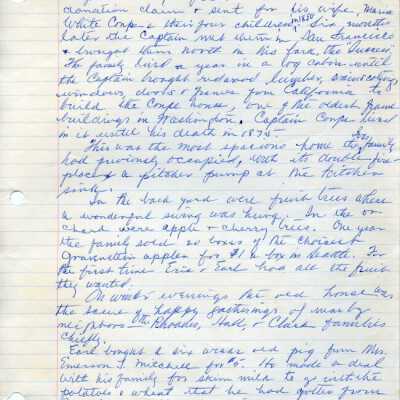 donation claim & sent for his wife, Maria
White Coupe & their four children in 1850. Six months
later the Captain met them in San Francisco
& brought them north in his bark, the Success.
The family lived a year in a log cabin until
the Captain brought redwood lumber,
windows, doors & frames from California to
build the Coupe house, one of the oldest frame
buildings in Washington. Captain Coupe lived
in it until his death in 1875.
This was the most spacious home the family
had previously occupied, with its double fire
place & a pitcher pump at the kitchen
sink.
In the back yard were fruit trees where
a wonderful swing was hung. In the or
chard were apple & cherry trees. One year
the family sold 20 boxes of the choicest
Gravenstein apples for $1 a box in Seattle. For
the first time Eric & Earl had all the fruit
they wanted.
On winter evenings the old house was
the scene of happy gatherings of nearby
neighbors - the Rhodes, Hall, & Clark families
chiefly.
Earl bought a six weeks old pig from Mrs.
Emerson J. Mitchell for $5. He made a deal
with his family for skim milk to go with the
potatoes & wheat that he had gotten from